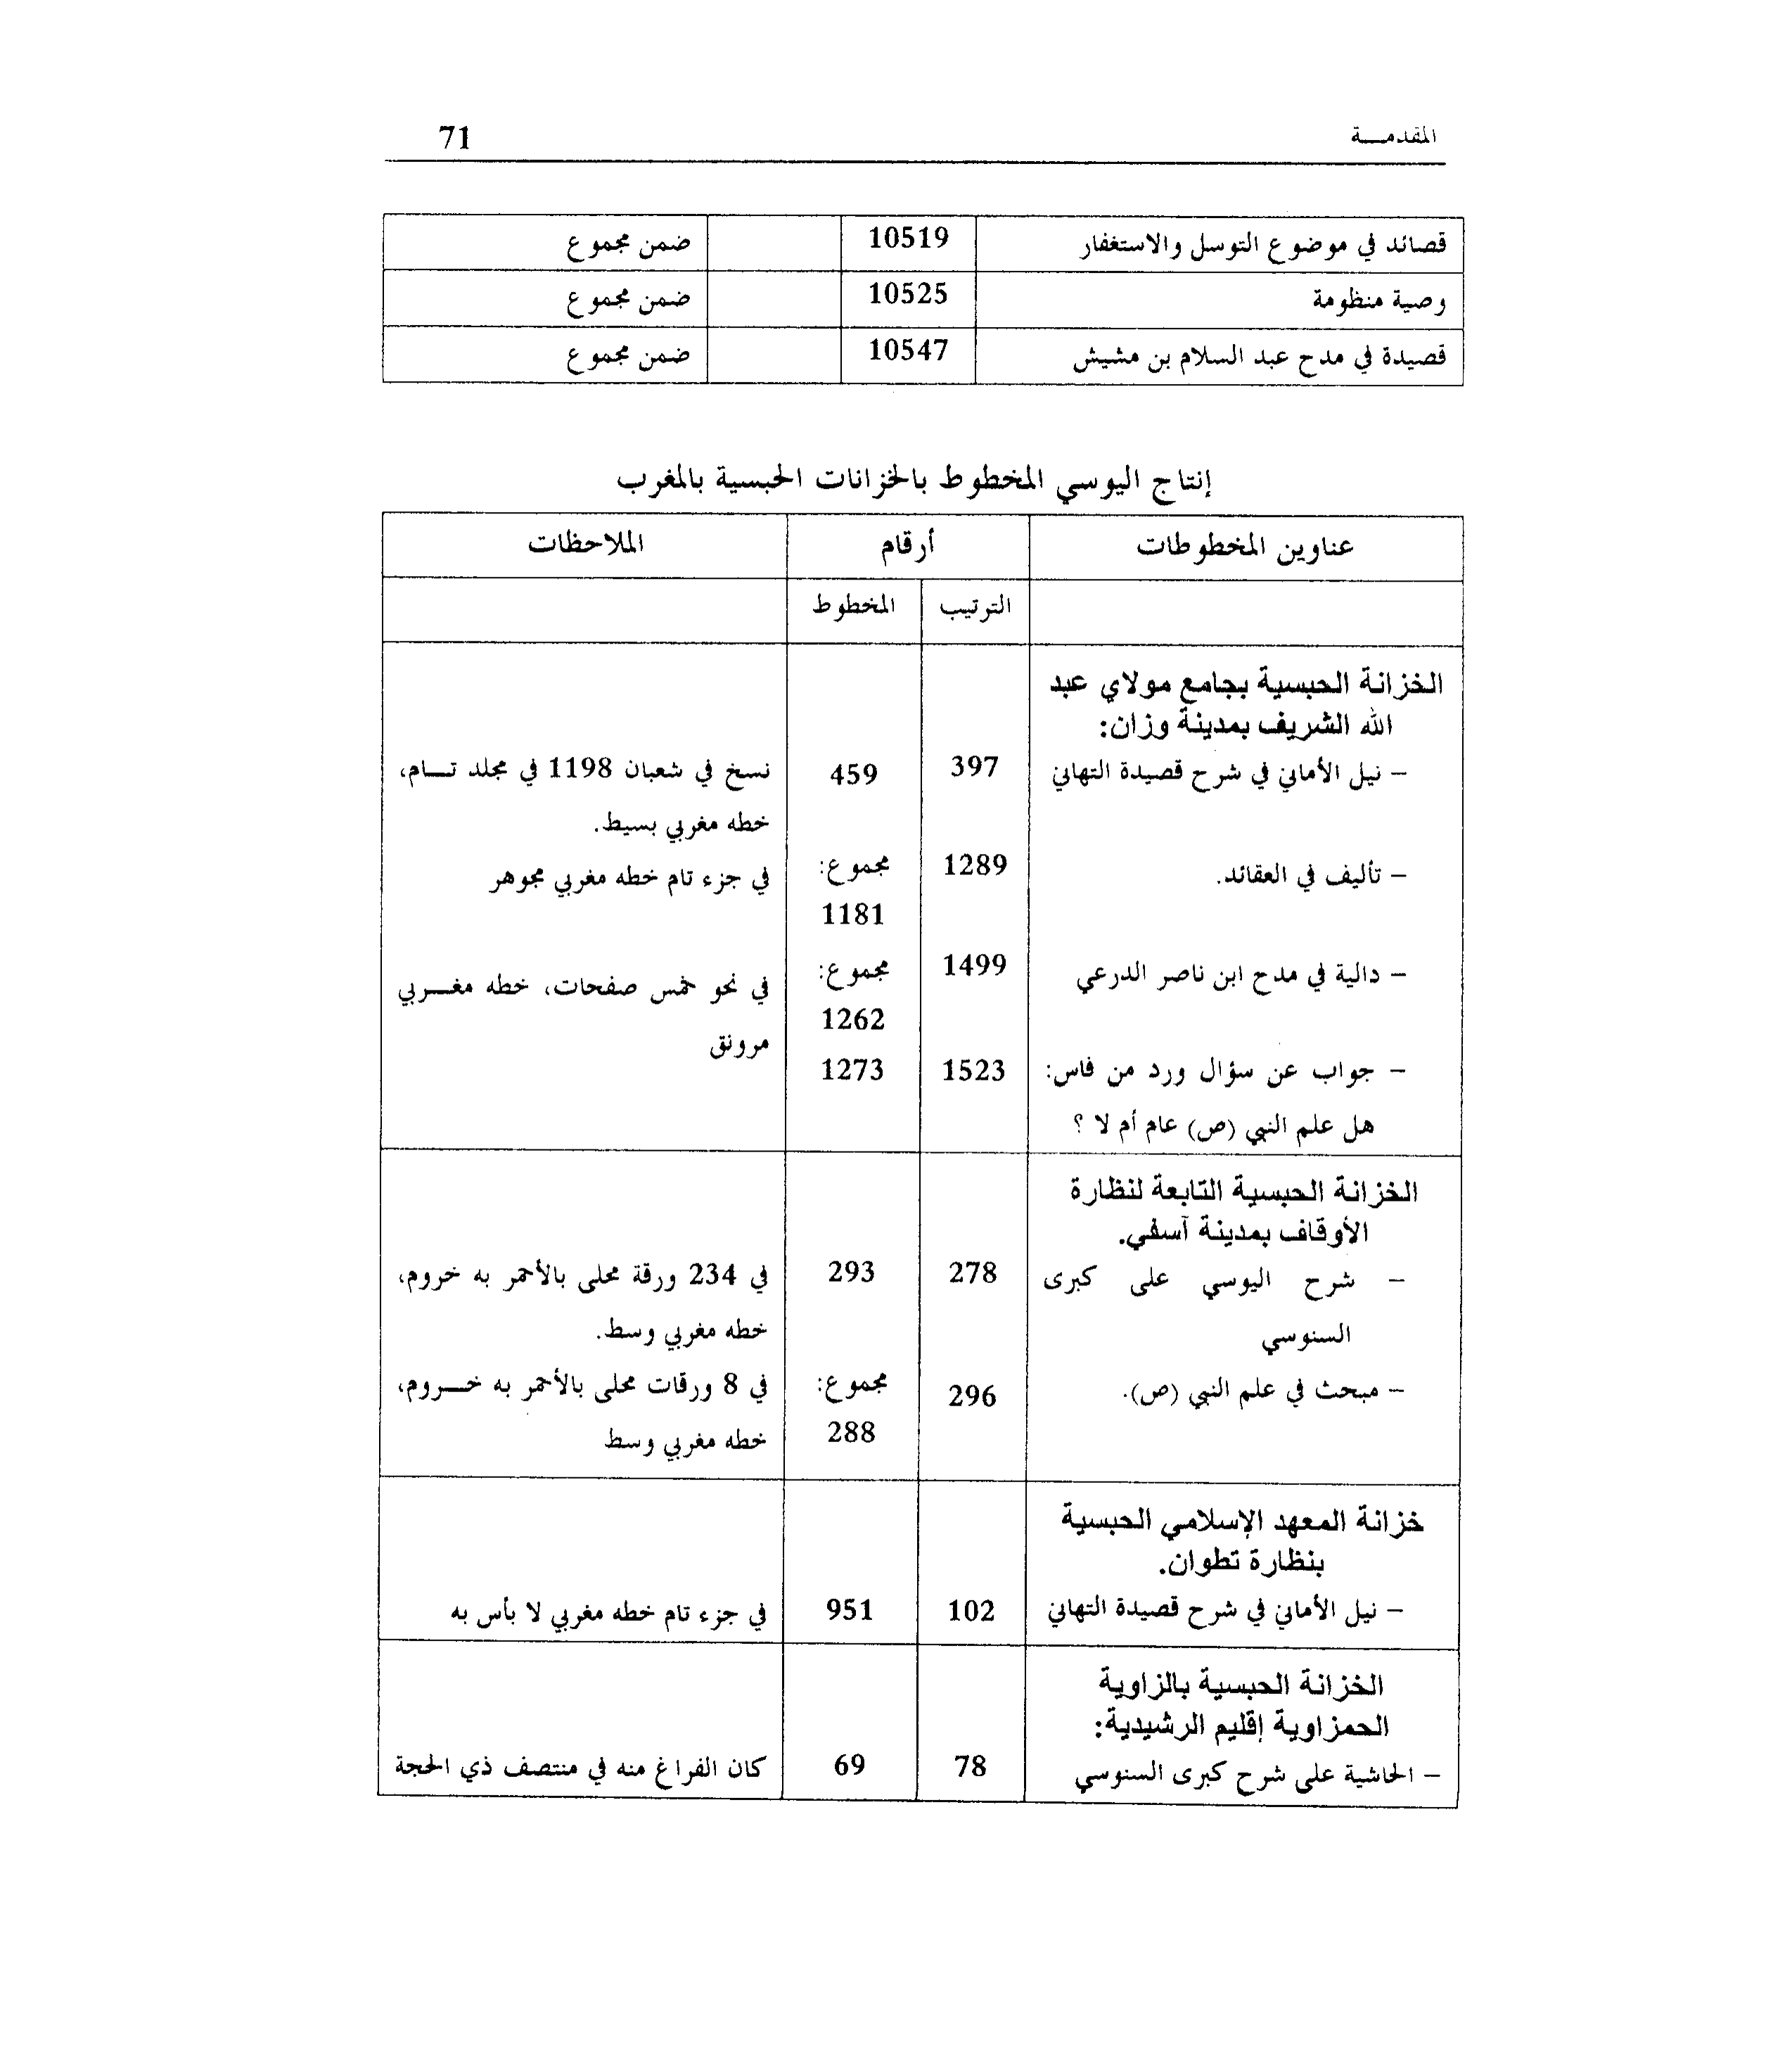 المقدمـــة 71
قصائد في موضوع التوسل والاستغفار 10519 ضمن مجموع
وصية منظومة 10525 ضمن مجموع
قصيدة في مدح عبد السلام بن مشيش 10547 ضمن مجموع
إنتاج اليوسي المخطوط بالخزانات الحبسية بالمغرب
عناوين المخطوطات أرقام الملاحظات
الترتيب المخطوط
الخزانة الحبسية بجامع مولاي عبد
الله الشريف بمدينة وزان:
– نيل الأماني في شرح قصيدة التهاني 397 459 نسخ في شعبان 1198 في مجلد تـــام،
خطه مغربي بسيط.
– تأليف في العقائد. 1289 مجموع: في جزء تام خطه مغربي مجوهر
1181
– دالية في مدح ابن ناصر الدرعي 1499 مجموع: في نحو خمس صفحات، خطه مغـــربي
1262 مرونق
– جواب عن سؤال ورد من فاس: 1523 1273
هل علم النبي (ص) عام أم لا ؟
الخزانة الحبسية التابعة لنظارة
الأوقاف بمدينة آسفي.
– شرح اليوسي على كبرى 278 293 في 234 ورقة محلى بالأحمر به خروم،
السنوسي خطه مغربي وسط.
– مبحث في علم النبي (ص). 296 مجموع: في 8 ورقات محلى بالأحمر به خـــروم،
288 خطه مغربي وسط
خزانة المعهد الإسلامي الحبسية
بنظارة تطوان.
– نيل الأماني في شرح قصيدة التهاني 102 951 في جزء تام خطه مغربي لا بأس به
الخزانة الحبسية بالزاوية
الحمزاوية إقليم الرشيدية:
– الحاشية على شرح كبرى السنوسي 78 69 كان الفراغ منه في منتصف ذي الحجة